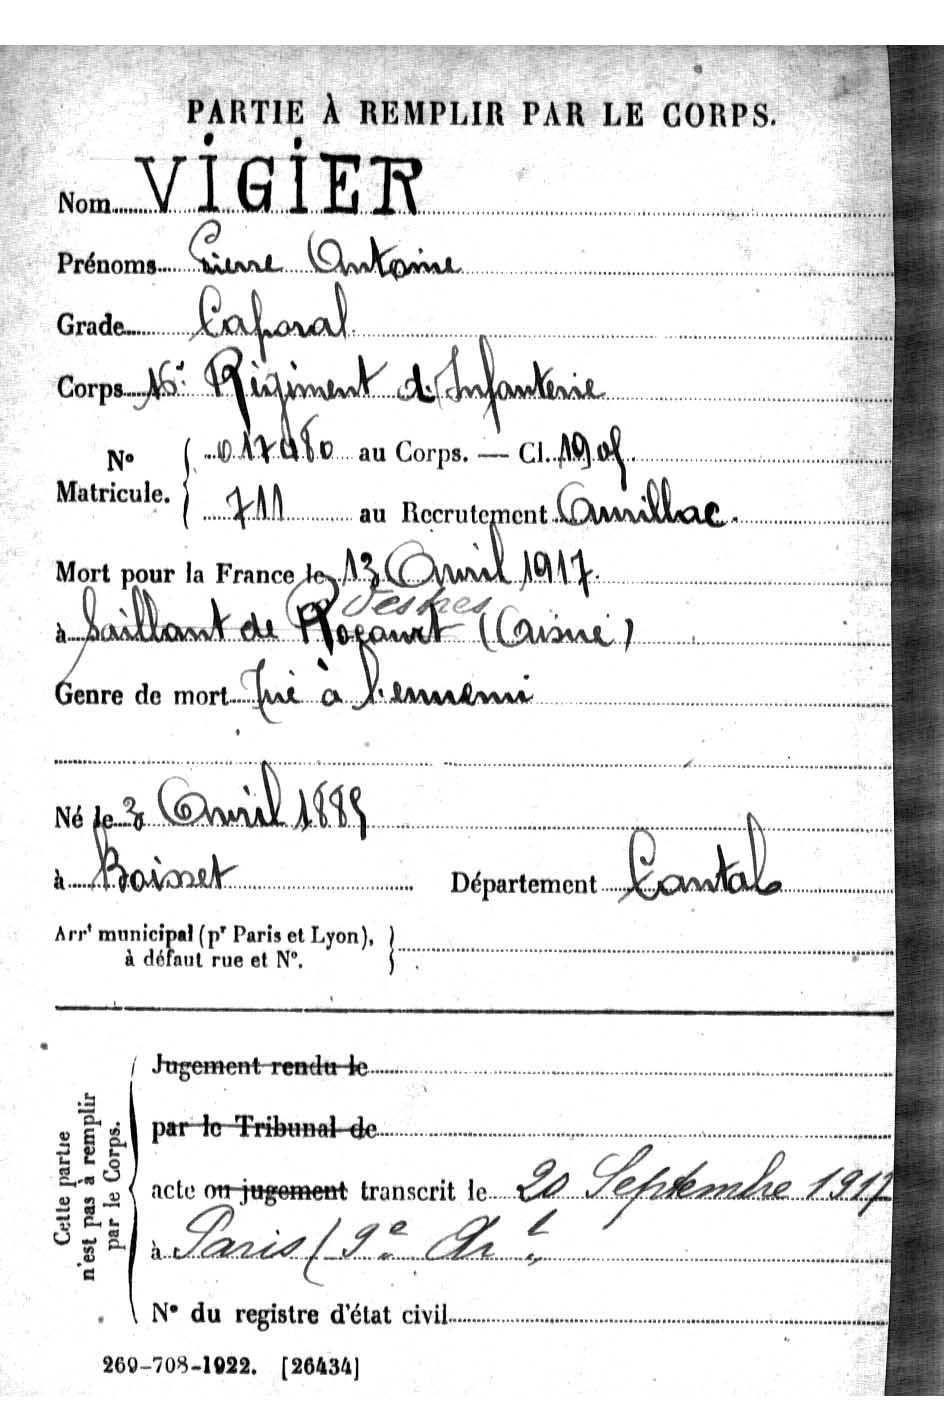 PARTIE À REMPLIR PAR LE CORPS.
Nom VIGIER
Prénoms Pierre Antoine
Grade Caporal
Corps 16e Régiment d'Infanterie
N° Matricule. { 017480 au Corps. — Cl. 1905
711 au Recrutement Aurillac.
Mort pour la France le 13 Avril 1917.
Vesles
à Saillant de Rocourt (Aisne)
Genre de mort Tué à l'ennemi
Né le 3 Avril 1885
à Boisset Département Cantal
Arrt municipal (pr Paris et Lyon), }
à défaut rue et N°.
Cette partie n'est pas à remplir par le Corps.
Jugement rendu le
par le Tribunal de
acte ou jugement transcrit le 20 Septembre 1917
à Paris (9e Art
N° du registre d'état civil
269-708-1922. [26434]